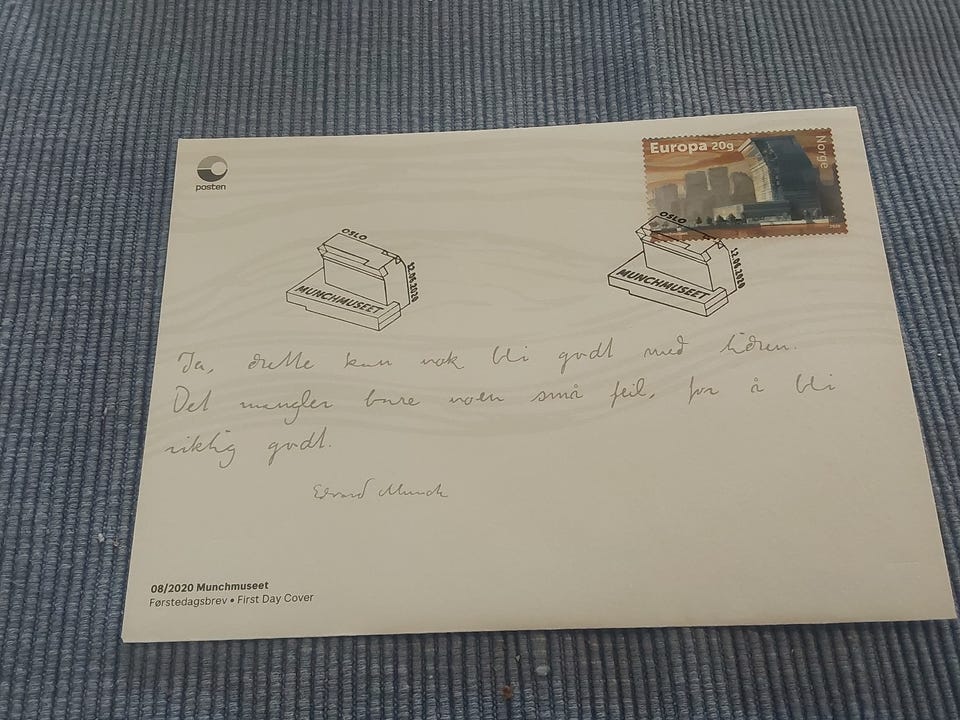 posten
Europa 20g
Norge
2020
OSLO
12.06.2020
MUNCHMUSEET
OSLO
12.06.2020
MUNCHMUSEET
Ja, dette kan nok bli godt med tiden.
Det mangler bare noen små feil, for å bli
riktig godt.
Edvard Munch
08/2020 Munchmuseet
Førstedagsbrev • First Day Cover